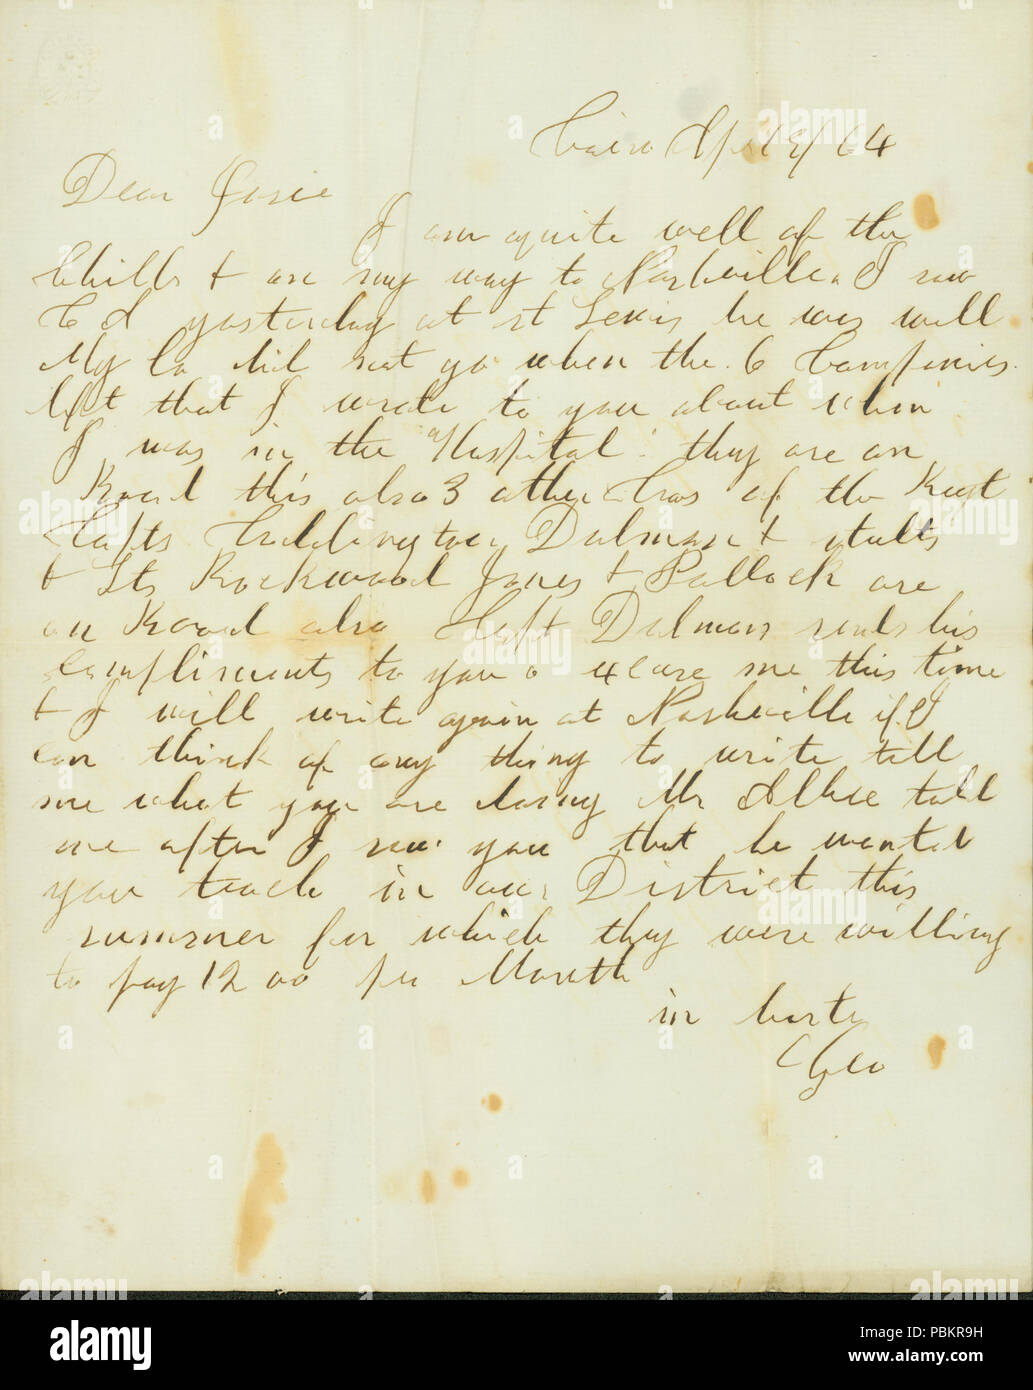 Cairo Apl 19/64
Dear Josie
I am quite well of the
Chills & on my way to Nashville. I saw
Ed yesterday at st Louis he was well
My Co did not go when the 6 Companies
left that I wrote to you about when
I was in the Hospital they are on
Board this also 3 other Cos of the Regt
Capts Dolman & Stults
& Lts Rockwood Jones & Pollock are
on Board also Capt Dolman sends his
compliments to you excuse me this time
& I will write again at Nashville if I
can think of any thing to write tell
me what you are doing Mr told
me after I saw you that he wanted
you teach in our District this
summer for which they were willing
to pay 12 00 per Month
in haste
Geo
alamy
Image ID: PBKR9H
www.alamy.com